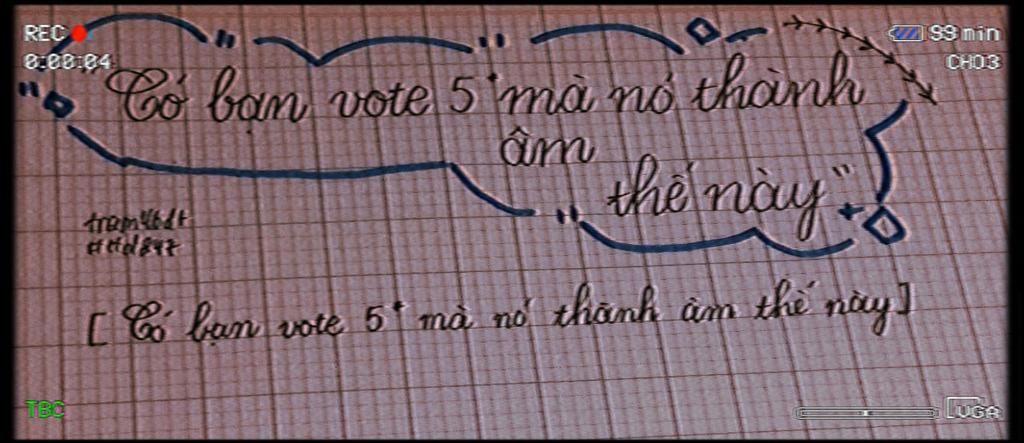 REC 99 min
0:00:04 CH03
"Có bạn vote 5* mà nó thành
âm
thế này"
[ Có bạn vote 5* mà nó thành âm thế này ]
TBC VGA